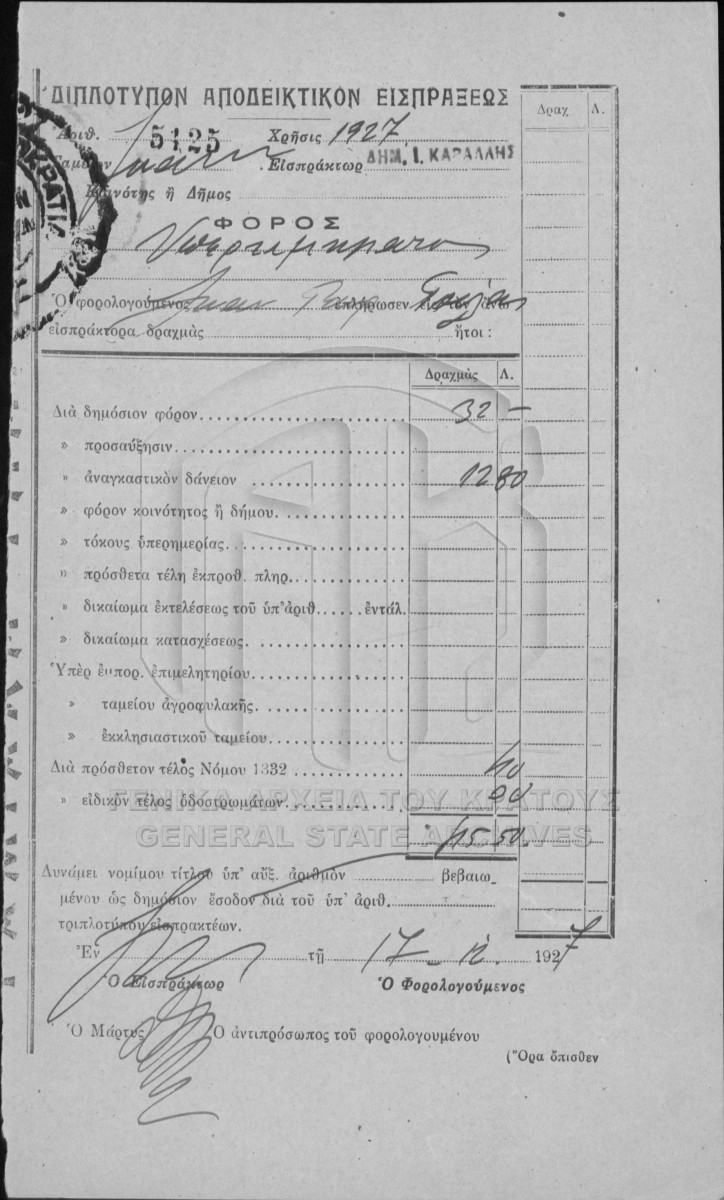 ΔΙΠΛΟΤΥΠΟΝ ΑΠΟΔΕΙΚΤΙΚΟΝ ΕΙΣΠΡΑΞΕΩΣ
Δραχ. Λ.
Ἀριθ. 5125 Χρῆσις 1927
Ταμεῖον Εἰσπράκτωρ ΔΗΜ. Ι. ΚΑΡΑΛΛΗΣ
Κοινότης ἢ Δῆμος
ΦΟΡΟΣ
Ὁ φορολογούμενος ἐπλήρωσεν εἰς τὸν ἄνω
εἰσπράκτορα δραχμὰς ἤτοι :
Δραχμὰς Λ.
Διὰ δημόσιον φόρον 32 —
» προσαύξησιν
» ἀναγκαστικὸν δάνειον 12 80
» φόρον κοινότητος ἢ δήμου.
» τόκους ὑπερημερίας.
» πρόσθετα τέλη ἐκπροθ. πληρ.
» δικαίωμα ἐκτελέσεως τοῦ ὑπ' ἀριθ. ἐντάλ.
» δικαίωμα κατασχέσεως.
Ὑπὲρ ἐμπορ. ἐπιμελητηρίου.
» ταμείου ἀγροφυλακῆς.
» ἐκκλησιαστικοῦ ταμείου.
Διὰ πρόσθετον τέλος Νόμου 1332
» εἰδικὸν τέλος ὁδοστρωμάτων.
ΓΕΝΙΚΑ ΑΡΧΕΙΑ ΤΟΥ ΚΡΑΤΟΥΣ
GENERAL STATE ARCHIVES
45 50
Δυνάμει νομίμου τίτλου ὑπ' αὔξ. ἀριθμὸν βεβαιω_
μένου ὡς δημόσιον ἔσοδον διὰ τοῦ ὑπ' ἀριθ.
τριπλοτύπου εἰσπρακτέων.
Ἐν τῇ 17 - 12. 1927
Ὁ Εἰσπράκτωρ Ὁ Φορολογούμενος
Ὁ Μάρτυς Ὁ ἀντιπρόσωπος τοῦ φορολογουμένου
(Ὅρα ὄπισθεν